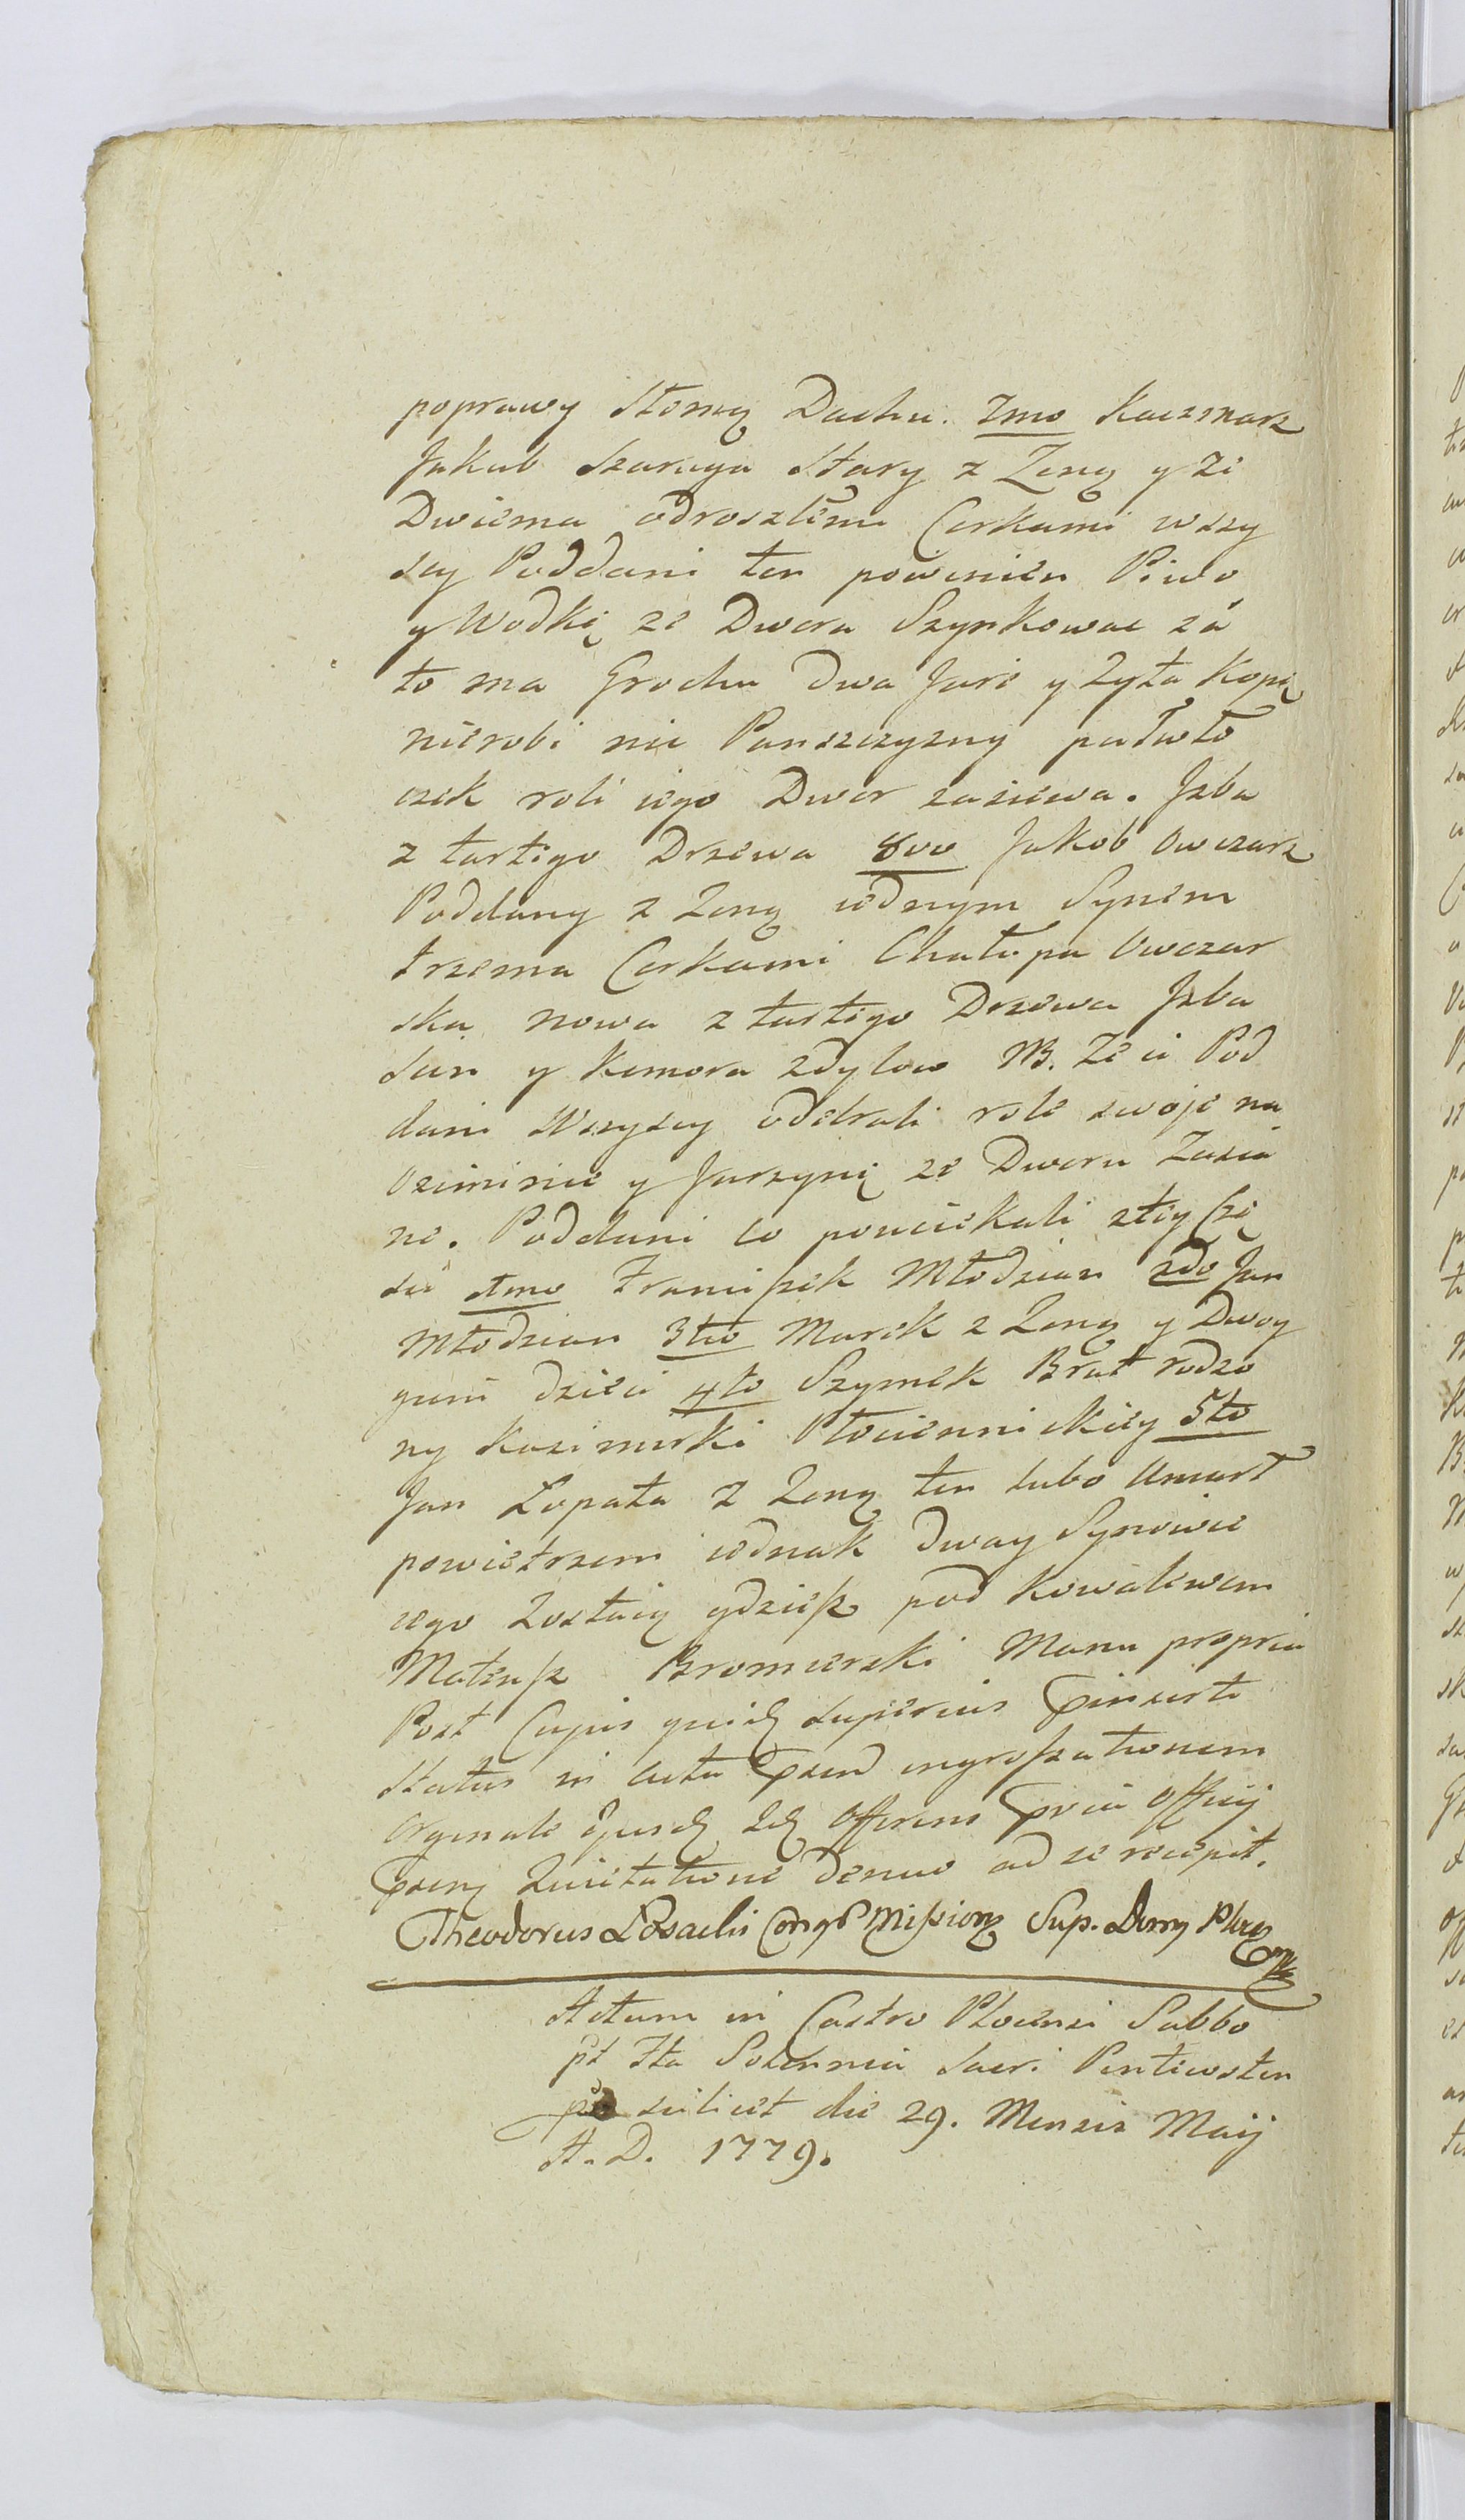 poprawy słomą Dachu. 7mo Kaczmarz
Jakub Szaruga Stary z Zoną y ze
Dwiema odroszłemi Corkami wszy
scy Poddani ten powinien Piwo
y Wodkę ze Dworu Szynkowac zá
to ma Grochu dwa Jure y Zyta Kopę
nierobi nic Panszczyzny pułwło
czek roli iego Dwor zasiewa. Jzba
z tartego Drzewa 8vo Jakob Owczarz
Poddany z Zoną iednym Synem
trzema Corkami Chałupa Owczar
ska nowa z tartego Drzewa Jzba
Sień y Komora zdylow NB. Ze ci Pod
dani Wszyscy odebrali role swoje na
Oziminie y Jarzynę ze Dworu Zasia
ne. Poddani co pouciekali ztey Czę
sci 1mo Franciszek Młodzian 2do Jan
Młodzian 3tio Marek z Zoną y Dwoy
giem dzieci 4to Szymek Brat rodzo
ny Kazimirki Płociennickiey 5to
Jan Łopata z Zoną ten lubo Umarł
powietrzem iednak dway Synowie
iego Zostaią gdzieś pod Kowalewem
Mateusz Bromierski Manu propria
Post Cujus quid superius insert
Status in acta ingrossationem
Orginale Ejusd Id Offerens Officij
Quietatione denuo ad se recepit.
Theodorus Congr Mission Sup. Dom Ploc
Actum in Castro Plocensi Sabbo
pt Fta Solennia Sacri Pentecosten
scilicet die 29. Mensis Maij
A. D. 1779.